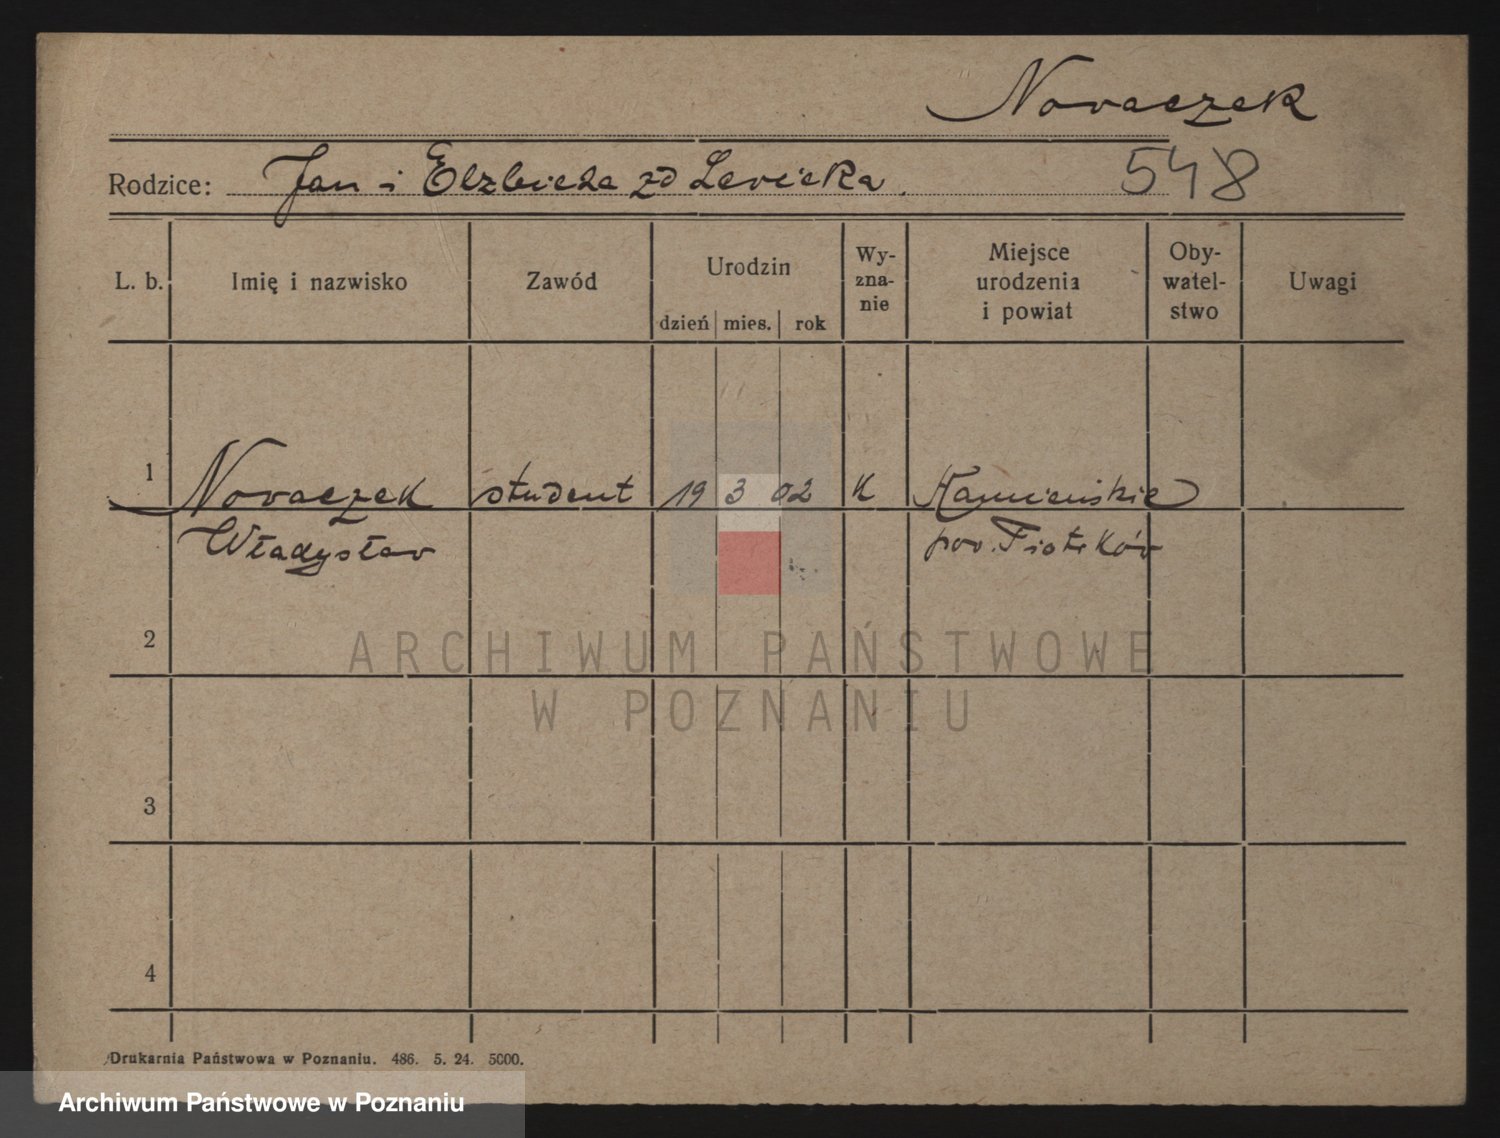 Nowaczek
Rodzice: Jan i Elzbieta zd Lewicka.
548
L. b.
Imię i nazwisko
Zawód
Urodzin
dzień mies. rok
Wy-
zna-
nie
Miejsce
urodzenia
i powiat
Oby-
watel-
stwo
Uwagi
1 Nowaczek student 19 3 02 K Kamieńskie
Władysław pow. Piotrków
2
3
4
ARCHIWUM PAŃSTWOWE
W POZNANIU
Drukarnia Państwowa w Poznaniu. 486. 5. 24. 5000.
Archiwum Państwowe w Poznaniu